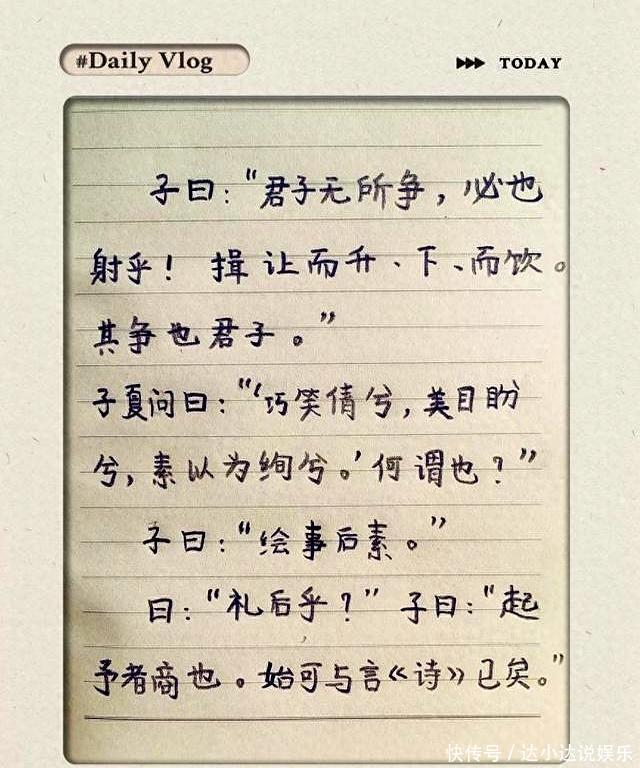 #Daily Vlog
TODAY
子曰：“君子无所争，必也
射乎！揖让而升、下、而饮。
其争也君子。”
子夏问曰：“‘巧笑倩兮，美目盼
兮，素以为绚兮。’何谓也？”
子曰：“绘事后素。”
曰：“礼后乎？”子曰：“起
予者商也。始可与言《诗》已矣。”
快传号/达小达说娱乐